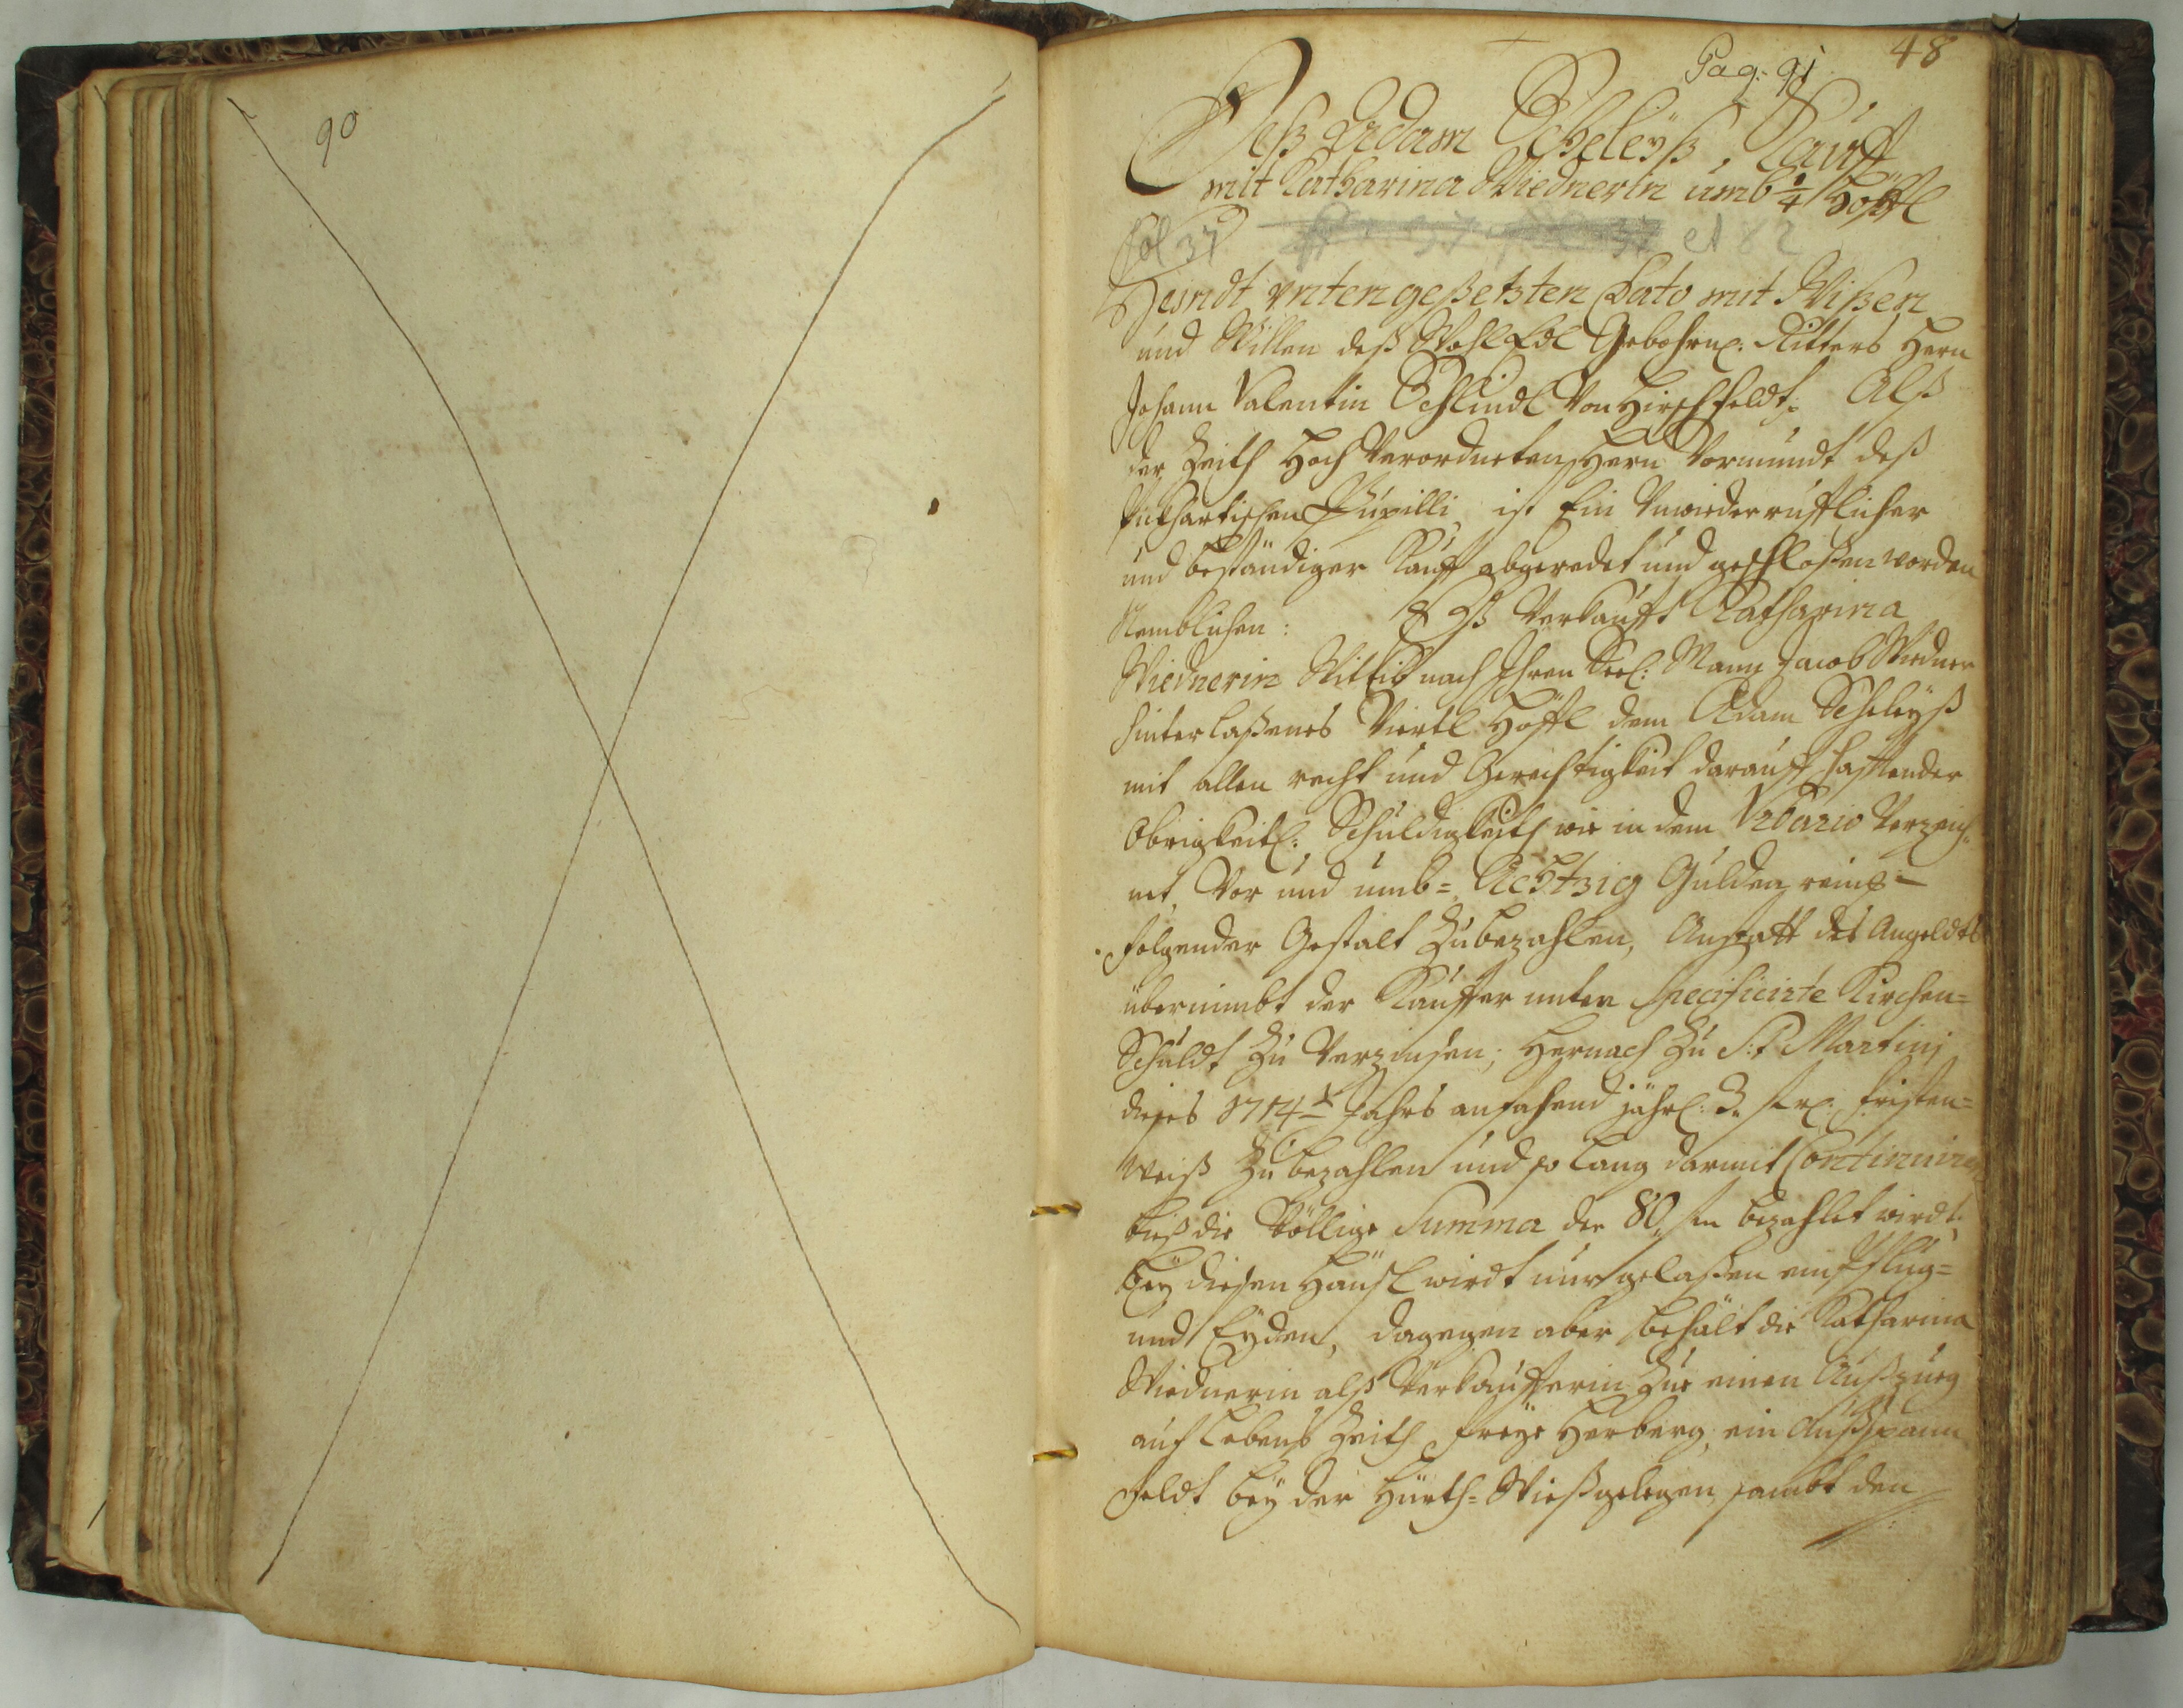 90
48
Pag: 91
Deß Adam Scheleÿß, Kauff
mit Katharina Wiednerin umb 1/4 Höffl
fol 37 et 82
Heundt unten geßetzten Dato mit Wißen
und Willen deß WohlEdl Gebohrnen Ritters Herrn
Johann Valentin Schlindl Von Hirschfeldt, Alß
der Zeith Hoch Verordneten Herrn Vormundt deß
Pupilli, ist Ein Unwiederrufflicher
und beständiger Kauff abgeredet und geschloßen worden
Nemblichen: Es Verkaufft Katharina
Wiednerin Wittib nach Ihren Seel: Mann Jacob Wiedner
hinterlaßenes Viertl Höffl dem Adam Scheleÿß
mit allen recht und Gerechtigkeit darauff hafftender
Obrigkeitl: Schuldigkeith wie in dem Urbario Verzeich=
net, Vor und umb= Achtzig Gulden reinß
folgender Gestalt Zubezahlen, Anstatt des Angeldts
übernimbt der Kauffer unten Specificirte Kirchen=
Schuldt Zu Verzinsen, Hernach Zu St Martini
dieses 1714t Jahrs anfahend jährl: 3 fl rh: fristen=
weiß Zu bezahlen und so lang darmit Continuiren
biß die Völlige Summa der 80 fl bezahlet wirdt.
Beÿ diesen Häußl wirdt nur gelaßen ein Pflug=
und Eÿden, dagegen aber behält die Katharina
Wiednerin alß Verkaufferin Zue einen Außzueg
auf Lebens Zeith freÿe Herberg, ein Außspann
Feldt beÿ der Hürth=Wieß gelegen, sambt den